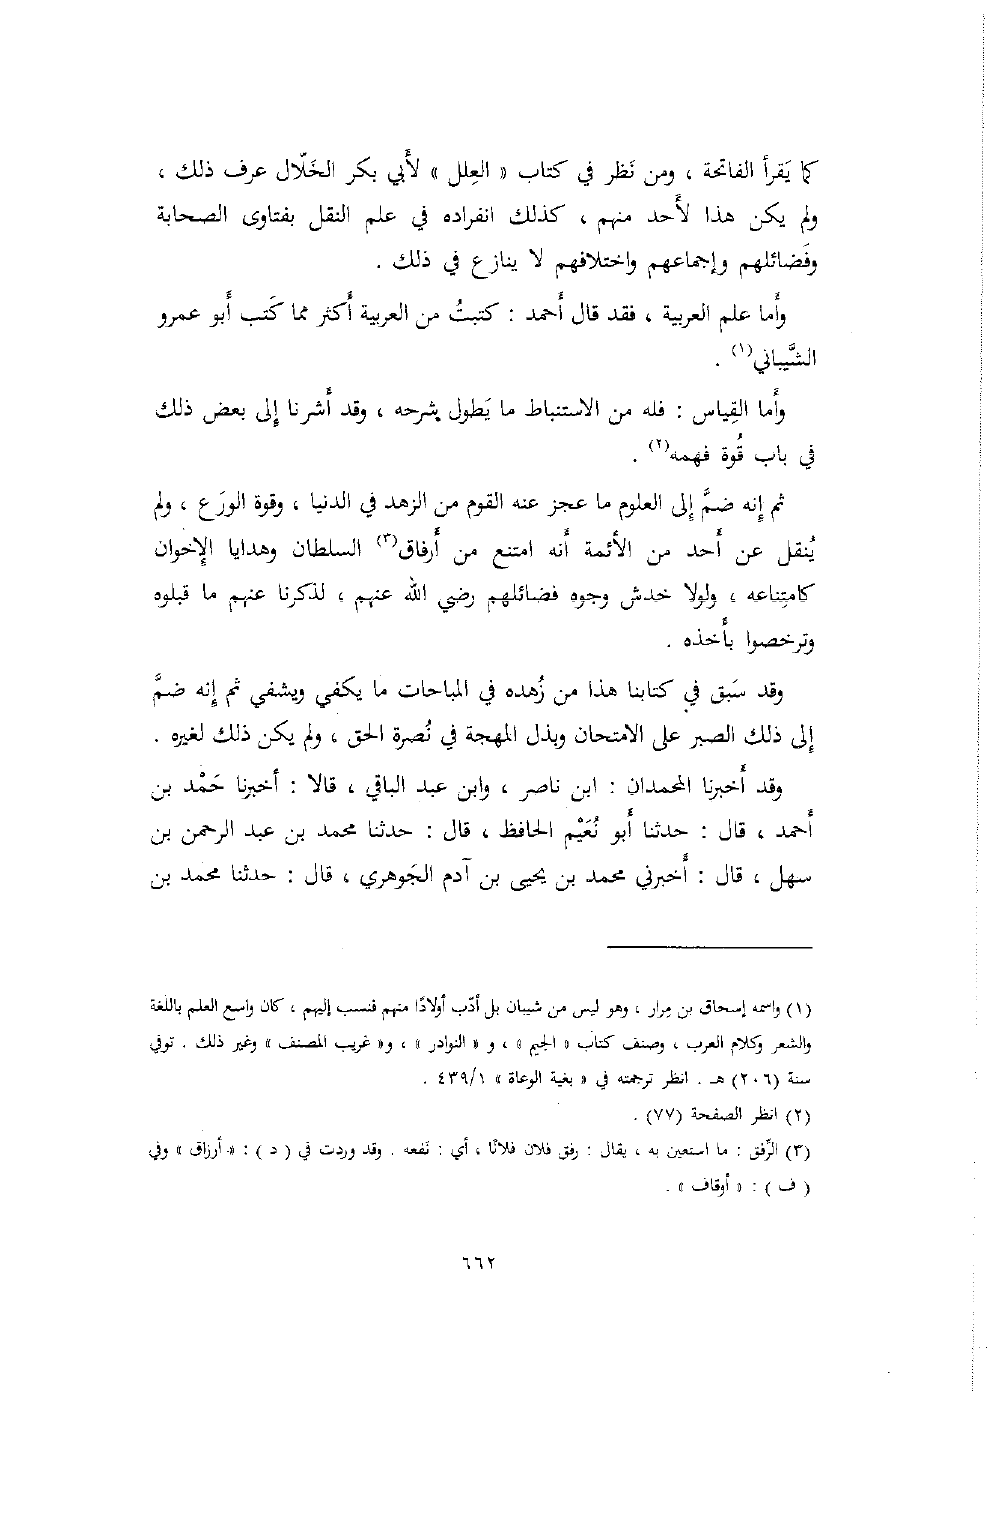 كما يَقرأ الفاتحة ، ومن نَظر في كتاب « العِلل » لأَبي بكر الخَلّال عرف ذلك ،
ولم يكن هذا لأَحد منهم ، كذلك انفراده في علم النقل بفتاوى الصحابة
وفَضائلهم وإجماعهم واختلافهم لا ينازع في ذلك .
وأَما علم العربية ، فقد قال أَحمد : كتبتُ من العربية أَكثر مما كَتب أَبو عمرو
الشَّيباني(١) .
وأَما القِياس : فله من الاستنباط ما يَطول شرحه ، وقد أَشرنا إِلى بعض ذلك
في باب قُوة فهمه(٢) .
ثم إِنه ضمَّ إِلى العلوم ما عجز عنه القوم من الزهد في الدنيا ، وقوة الورَع ، ولم
يُنقل عن أَحد من الأَئمة أَنه امتنع من أَرفاق(٣) السلطان وهدايا الإِخوان
كامتِناعه ، ولولا خدش وجوه فضائلهم رضي الله عنهم ، لذكرنا عنهم ما قبلوه
وترخصوا بأَخذه .
وقد سَبق في كتابنا هذا من زُهده في المباحات ما يكفي ويشفي ثم إِنه ضمَّ
إِلى ذلك الصبر على الامتحان وبذل المهجة في نُصرة الحق ، ولم يكن ذلك لغيره .
وقد أَخبرنا المحمدان : ابن ناصر ، وابن عبد الباقي ، قالا : أخبرنا حَمْد بن
أَحمد ، قال : حدثنا أَبو نُعَيْم الحافظ ، قال : حدثنا محمد بن عبد الرحمن بن
سهل ، قال : أَخبرني محمد بن يحيى بن آدم الجَوهري ، قال : حدثنا محمد بن
(١) واسمه إسحاق بن مِرار ، وهو ليس من شيبان بل أدّب أولادًا منهم فنسب إليهم ، كان واسع العلم باللغة
والشعر وكلام العرب ، وصنف كتاب « الجيم » ، و « النوادر » ، و« غريب المصنف » وغير ذلك . توفي
سنة (٢٠٦) هـ . انظر ترجمته في « بغية الوعاة » ٤٣٩/١ .
(٢) انظر الصفحة (٧٧) .
(٣) الرِّفق : ما استعين به ، يقال : رفق فلان فلانًا ، أي : نَفعه . وقد وردت في ( د ) : « أرزاق » وفي
( ف ) : « أوقاف » .
٦٦٢